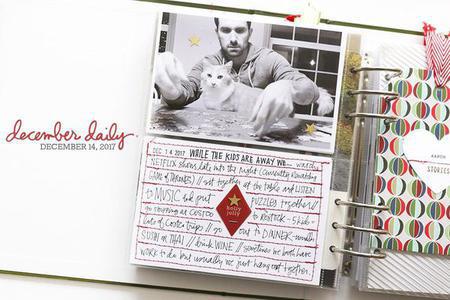 december daily.
DECEMBER 14, 2017
DEC 14 2017 WHILE THE KIDS ARE AWAY WE... watch
NETFLIX shows late into the night (currently rewatching
GAME of THRONES) // sit together at the table and LISTEN
to MUSIC and put PUZZLES together //
go shopping at COSTCO to RESTOCK
lots of Costco trips) // go out to DINNER - usually
SUSHI or THAI // drink WINE // sometimes we both have
WORK to do but usually we just hang out together.
holly
jolly
AARON
STORIES